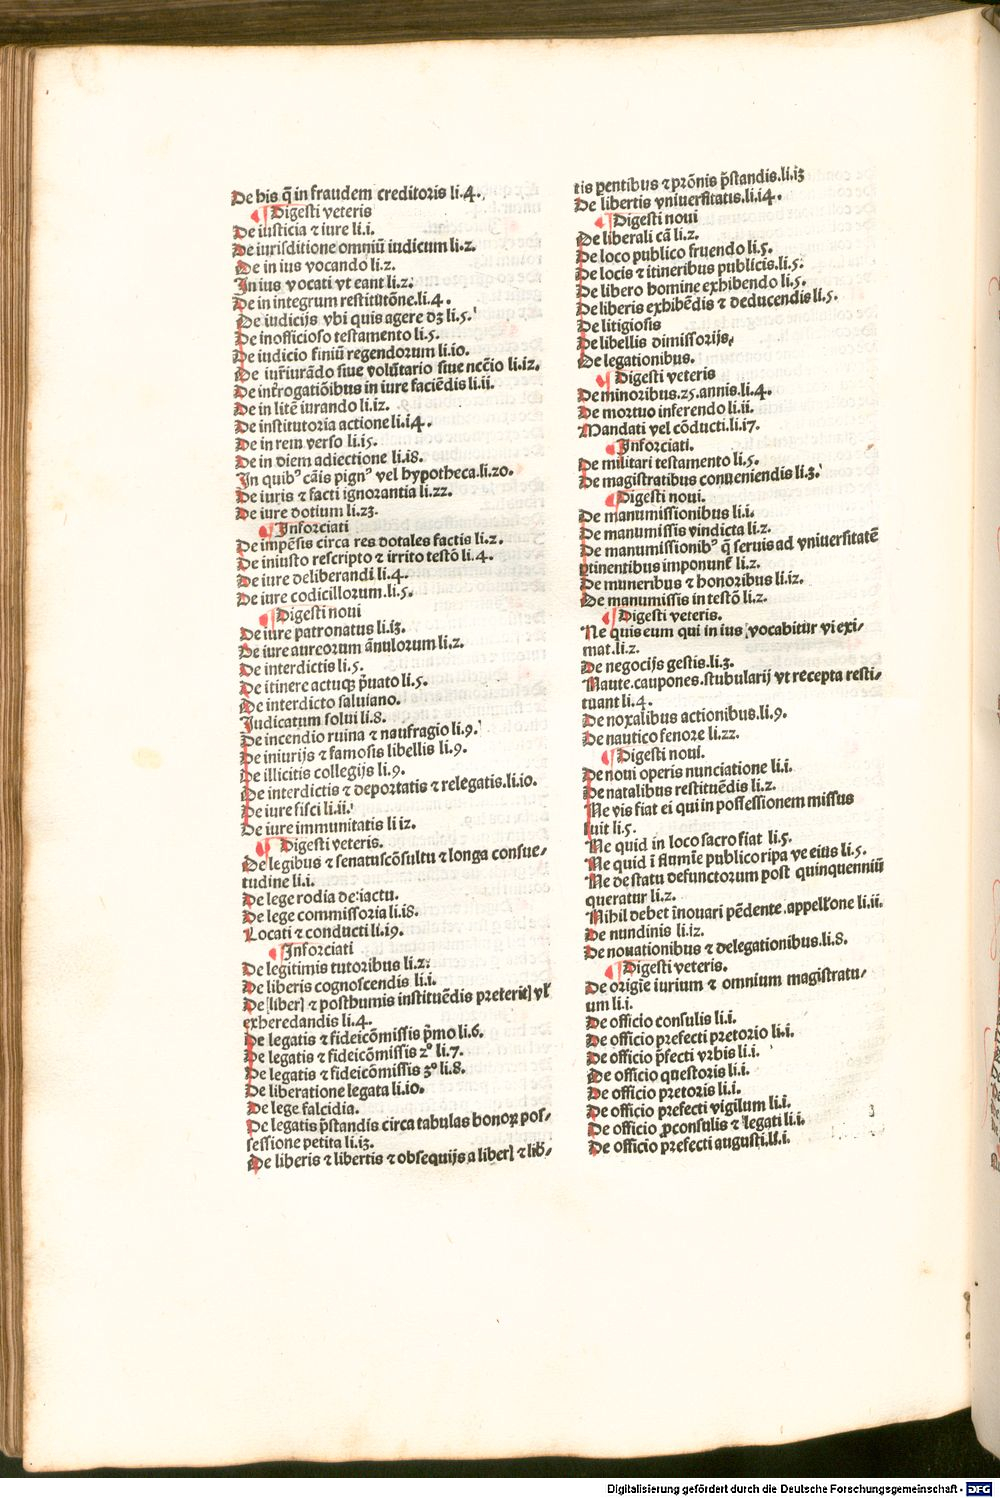 De his q̃ in fraudem creditoris li.4.
¶ Digesti veteris
De iusticia ⁊ iure li.i.
De iurisditione omniũ iudicum li.2.
De in ius vocando li.2.
In ius vocati vt eant li.2.
De in integrum restitutõne.li.4.
De iudicijs vbi quis agere dꝫ li.5.
De inofficioso testamento li.5.
De iudicio finiũ regendorum li.10.
De iureiurãdo siue volũtario siue necc̃io li.12.
De interrogatiõibus in iure faciẽdis li.ii.
De in litẽ iurando li.12.
De institutoria actione li.14.
De in rem verso li.15.
De in diem adiectione li.18.
In quibꝰ cãis pignꝰ vel hypotheca.li.20.
De iuris ⁊ facti ignorantia li.22.
De iure dotium li.23.
¶ Inforciati
De impẽsis circa res dotales factis li.2.
De iniusto rescripto ⁊ irrito testõ li.4.
De iure deliberandi li.4.
De iure codicillorum.li.5.
¶ Digesti noui
De iure patronatus li.13.
De iure aureorum ãnulorum li.2.
De interdictis li.5.
De itinere actuqꝫ p̃uato li.5.
De interdicto saluiano.
Iudicatum solui li.8.
De incendio ruina ⁊ naufragio li.9.
De iniurijs ⁊ famosis libellis li.9.
De illicitis collegijs li.9.
De interdictis ⁊ deportatis ⁊ relegatis.li.10.
De iure fisci li.ii.
De iure immunitatis li 12.
¶ Digesti veteris.
De legibus ⁊ senatuscõsultu ⁊ longa consue/
tudine li.i.
De lege rodia de iactu.
De lege commissoria li.18.
Locati ⁊ conducti li.19.
¶ Inforciati
De legitimis tutoribus li.2.
De liberis cognoscendis li.i.
De liberꝭ ⁊ posthumis instituẽdis preteritꝭ vl̕
exheredandis li.4.
De legatis ⁊ fideicõmissis p̃mo li.6.
De legatis ⁊ fideicõmissis 2° li.7.
De legatis ⁊ fideicõmissis 3° li.8.
De liberatione legata li.10.
De lege falcidia.
De legatis p̃standis circa tabulas bonoꝝ pos/
sessione petita li.13.
De liberis ⁊ libertis ⁊ obsequijs a liberꝭ ⁊ lib̕/
tis ꝑentibus ⁊ prõnis p̃standis.li.13
De libertis vniuersitatis.li.14.
¶ Digesti noui
De liberali cã li.2.
De loco publico fruendo li.5.
De locis ⁊ itineribus publicis.li.5.
De libero homine exhibendo li.5.
De liberis exhibẽdis ⁊ deducendis li.5.
De litigiosis
De libellis dimissorijs.
De legationibus.
¶ Digesti veteris
De minoribus.25.annis.li.4.
De mortuo inferendo li.ii.
Mandati vel cõducti.li.17.
¶ Inforciati.
De militari testamento li.5.
De magistratibus conueniendis li.3.
¶ Digesti noui.
De manumissionibus li.i.
De manumissis vindicta li.2.
De manumissionibꝰ q̃ seruis ad vniuersitatẽ
ꝑtinentibus imponunt̕ li.2.
De muneribus ⁊ honoribus li.12.
De manumissis in testõ li.2.
¶ Digesti veteris.
Ne quis eum qui in ius vocabitur vi exi/
mat.li.2.
De negocijs gestis.li.3.
Naute.caupones.stubularij vt recepta resti/
tuant li.4.
De noxalibus actionibus.li.9.
De nautico fenore li.22.
¶ Digesti noui.
De noui operis nunciatione li.i.
De natalibus restituẽdis li.2.
Ne vis fiat ei qui in possessionem missus
fuit li.5.
Ne quid in loco sacro fiat li.5.
Ne quid ĩ flumĩe publico ripa ve eius li.5.
Ne de statu defunctorum post quinquenniũ
queratur li.2.
Nihil debet inouari pẽdente.appell̕one li.ii.
De nundinis li.12.
De nouationibus ⁊ delegationibus.li.8.
¶ Digesti veteris.
De origĩe iurium ⁊ omnium magistratu/
um li.i.
De officio consulis li.i.
De officio prefecti pretorio li.i.
De officio p̃fecti vrbis li.i.
De officio questoris li.i.
De officio pretoris li.i.
De officio prefecti vigilum li.i.
De officio ꝓconsulis ⁊ legati li.i.
De officio prefecti augusti.li.i.
Digitalisierung gefördert durch die Deutsche Forschungsgemeinschaft - DFG